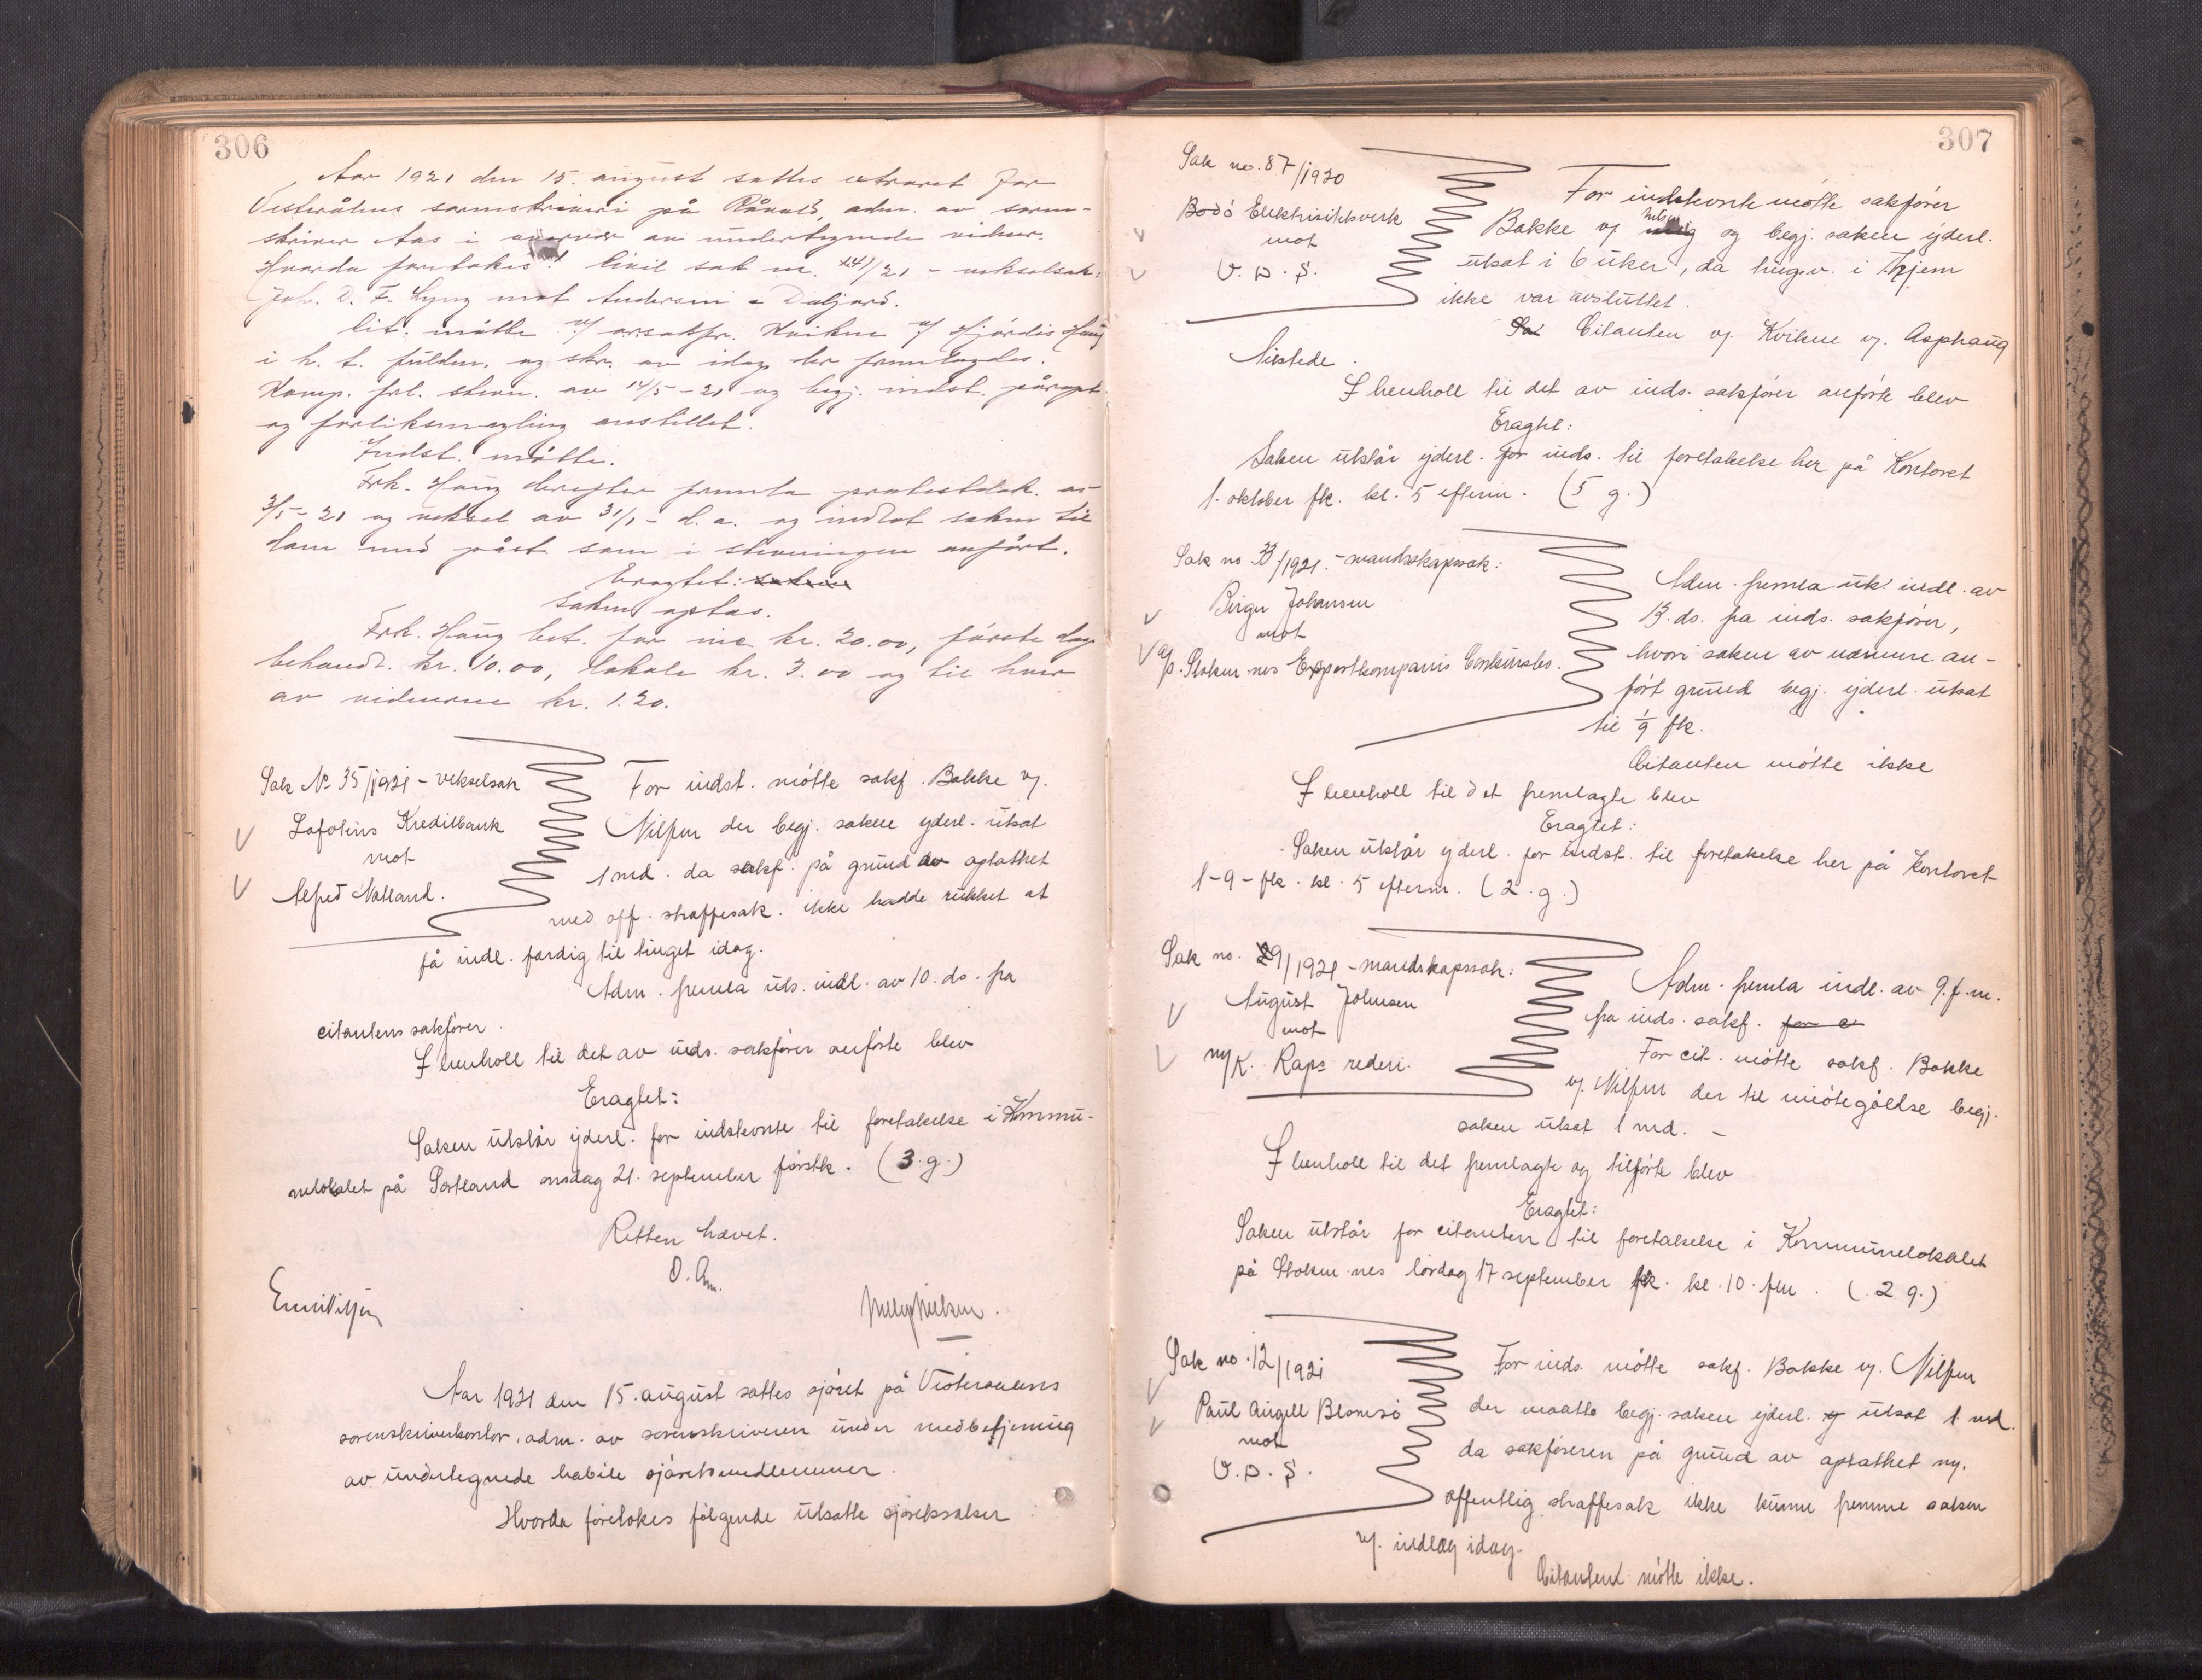 306
Aar 1921 den 15. august sattes extraret for
Vesterålens sorenskriveri på Råvold, adm. av soren-
skriver Aas i nærvær av undertegnede vidner.
Hvorda foretokes: Civil sak nr. 41/21 - vekselsak:
Joh. D. F. Lyng mot Andersen & Daljord.
Cit. møtte v/ orsakfr. Kvikne v/ Hjørdis Haug
i h. t. fuldm. og skr. av idag der fremlagdes.
Komp. frl. stevn. av 14/5-21 og begj. indst. påropt
og forliksmægling anstillet.
Indst. møtte.
Frk. Haug derefter fremla protestdok. av
3/5-21 og veksel av 31/1 - d. a. og indlot saken til
dom med påst. som i stevningen anført.
Eragtet:
Saken optas.
Frk. Haug bet. for inc. kr. 20.00, første dags
behandl. kr. 10.00, lokale kr. 3.00 og til hver
av vidnerne kr. 1.20.
Sak No 35/1921 - vekselsak
Lofotens Kreditbank
mot
Alfred Natland.
For indst. møtte sakf. Bakke v/.
Nilsen der begj. saken yderl. utsat
1 md. da sakf. på grund av optatthet
med off. straffesak. ikke hadde rukket at
få indl. færdig til tinget idag.
Adm. fremla uts. indl. av 10. ds. fra
citantens sakfører.
I henhold til det av inds. sakfører anførte blev
Eragtet:
Saken utstår yderl. for indstevnte til foretakelse i Kommu-
nelokalet på Sortland onsdag 21. september førstk. (3.g.)
Retten hævet.
O. Aas.
Aar 1921 den 15. august sattes sjøret på Vesteraalens
sorenskriverkontor, adm. av sorenskriveren under medbetjening
av undertegnede habile sjøretsmedlemmer.
Hvorda foretokes følgende utsatte sjøretssaker:
307
Sak no. 87/1920
Bodø Elektrisitetsverk
mot
V. D. S.
For indstevnte møtte sakfører
Bakke v/ Nilsen og begj. saken yderl.
utsat i 6 uker, da tingsv. i Hjem
ikke var avsluttet.
Sa Citanten v/. Kvikne v/. Asphaug
tilstede.
I henholl til det av inds. sakfører anførte blev
Eragtet:
Saken utstår yderl. for inds. til foretakelse her på Kontoret
1. oktober fk. kl. 5 efterm. (5 g.)
Sak no 33/1921. - mandskapssak:
Birger Johansen
mot
A/S. Stokmarknes Exportkompanis Konkursbo.
Adm. fremla utk. indl. av
13. ds. fra inds. sakfører,
hvori saken av nærmere an-
ført grund begj. yderl. utsat
til 1/9 fk.
Citanten møtte ikke
I henholl til det fremlagte blev
Eragtet:
Saken utstår yderl. for indst. til foretakelse her på Kontoret
1-9- fk. kl. 5 efterm. (2. g.)
Sak no. 29/1921 - mandskapssak:
August Johnsen
mot
M/K. Raps rederi.
Adm. fremla indl. av 9. f. m.
fra inds. sakf. for c
For cit. møtte sakf. Bakke
v/. Nilsen der til imøtegåelse begj.
saken utsat 1 md. -
I henholl til det fremlagte og tilførte blev
Eragtet:
Saken utstår for citanten til foretakelse i Kommunelokalet
på Stokm.nes lørdag 17 september fk. kl. 10. fm. (2 g.)
Sak no. 12/1921
Paul Angell Blomsø
mot
V. D. S.
For inds. møtte sakf. Bakke v/. Nilsen
der maatte begj. saken yderl. utsat 1 md.
da sakføreren på grund av optatthet v/.
offentlig straffesak ikke kunne fremme saken
v/. indlæg idag.
Citanten møtte ikke.